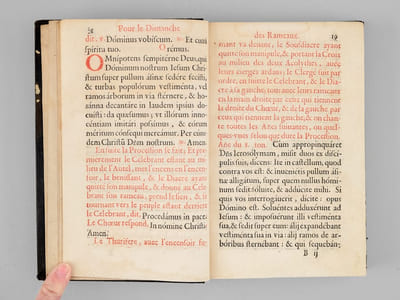 Pour le Dimanche
dit. ℣. Dóminus vobiscum. ℟. Et cum
spíritu tuo. Orémus.
OMnipotens sempitérne Deus, qui
Dóminum nostrum Iesum Chri-
stum super pullum ásinæ sedére fecísti,
& turbas populórum vestiménta, vel
ramos árborum in via stérnere, & ho-
sánna decantáre in laudem ipsíus do-
cuísti: da quǽsumus; vt illórum inno-
céntiam imitári possímus, & eórum
méritum cónsequi mereámur. Per eun-
dem Christū Dñm nostrum. ℟. Amen.
Ensuite la Procession se fait; Et pre-
mierement le Celebrant estant au mi-
lieu de l'Autel, met l'encens en l'encen-
soir, le benissant, & le Diacre ayant
quitté son manipule, & donné au Cele-
brant son rameau, prend le sien, & se
tournant vers le peuple estant derriere
le Celebrant, dit. Procedámus in pace.
Le Chœur respond. In nómine Christi.
Amen.
Le Thurifere, auec l'encensoir fu-
des Rameaux. 19
mant va deuant, le Sousdiacre ayant
quitté son manipule, & portant la Croix
au milieu des deux Acolythes, auec
leurs cierges ardans; le Clergé suit par
ordre, en suite le Celebrant, & le Dia-
cre à sa gauche; tous auec leurs rameaux
en la main droite par ceux qui tiennent
la droite du Chœur, & de la gauche par
ceux qui tiennent la gauche, & on chan-
te toutes les Antiennes suiuantes, ou quel-
ques-vnes selon que dure la Procession.
Cum appropinquáret
Dñs Ierosolymam, misit duos ex discí-
pulis suis, dicens: Ite in castéllum, quod
contra vos est: & inueniétis pullum ási-
næ alligátum, super quem nullus hómi-
num sedit: sóluite, & addúcite mihi. Si
quis vos interrogáuerit, dícite: opus
Dómino est. Soluéntes adduxérunt ad
Iesum: & imposuérunt illi vestiménta
sua, & sedit super eum: álij expandébant
vestiménta sua in via: álij ramos de ar-
bóribus sternébant: & qui sequebán-
B ij